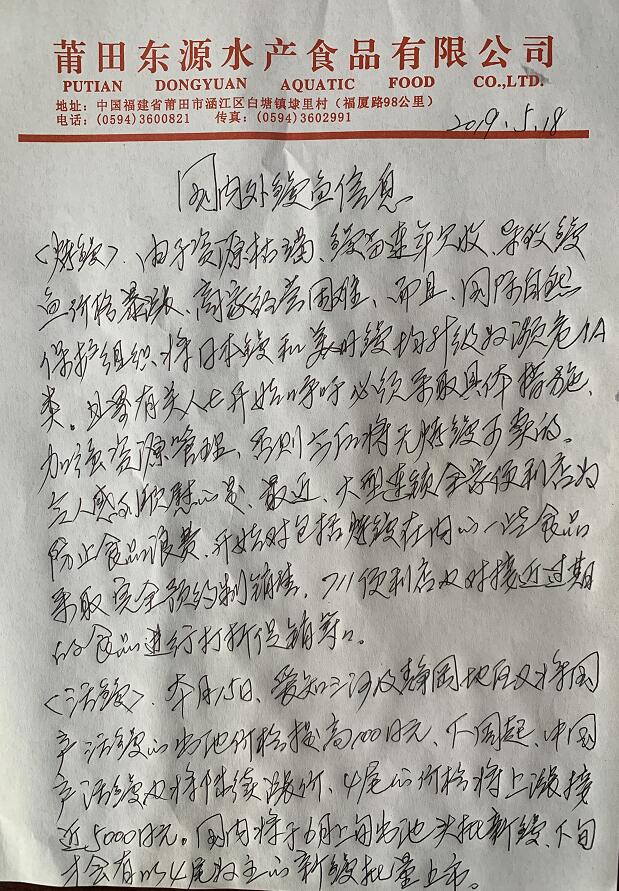 莆田东源水产食品有限公司
PUTIAN DONGYUAN AQUATIC FOOD CO.,LTD.
地址：中国福建省莆田市涵江区白塘镇埭里村（福厦路98公里）
电话：(0594)3600821 传真：(0594)3602991
2019.5.18
国内外鳗鱼信息
〈烤鳗〉. 由于资源枯竭、鳗苗连年欠收、导致鳗
鱼价格暴跌、商家经营困难、而且、国际自然
保护组织、将日本鳗和美州鳗均升级为濒危1A
类。业界有关人士开始呼吁必须采取具体措施、
加强资源管理、否则今后将无烤鳗可卖的。
令人感到欣慰的是、最近、大型连锁全家便利店为
防止食品浪费、开始对包括烤鳗在内的一些食品
采取完全预约制销售、711便利店又对接近过期
的食品进行打折促销等。
〈活鳗〉. 本月15日、爱知三河及静冈地区又将国
产活鳗的出池价格提高100日元、下周起、中国
产活鳗又将继续涨价、4尾的价格将上涨接
近5000日元。国内将于6月上旬出池头批新鳗、下旬
才会有以4尾为主的新鳗批量上市。